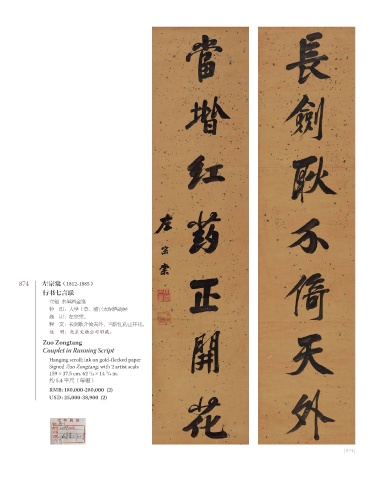 長劍耿介倚天外
當堦紅药正開花
左宗棠
874
左宗棠（1812-1885）
行书七言联
Zuo Zongtang
Couplet in Running Script
Hanging scroll; ink on gold-flecked paper
Signed Zuo Zongtang, with 2 artist seals
RMB: 180,000-280,000 (2)
USD: 25,000-38,900 (2)